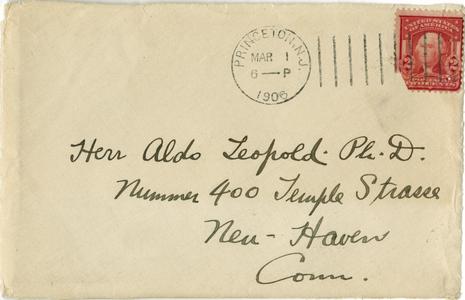 PRINCETON, N.J.
MAR 1
6 — P
1906
UNITED STATES
OF AMERICA
2 2
TWO CENTS
Herr Aldo Leopold Ph. D.
Nummer 400 Temple Strasse
Neu-Haven
Conn.